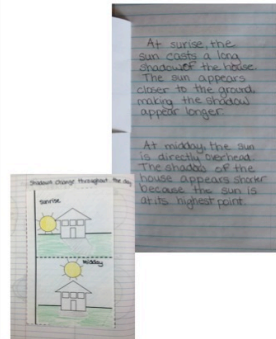 At sunrise, the
sun casts a long
shadow of the house.
The sun appears
closer to the ground,
making the shadow
appear longer.
At midday, the sun
is directly overhead.
The shadow of the
house appears shorter
because the sun is
at its highest point.
Shadows change throughout the day
sunrise
midday